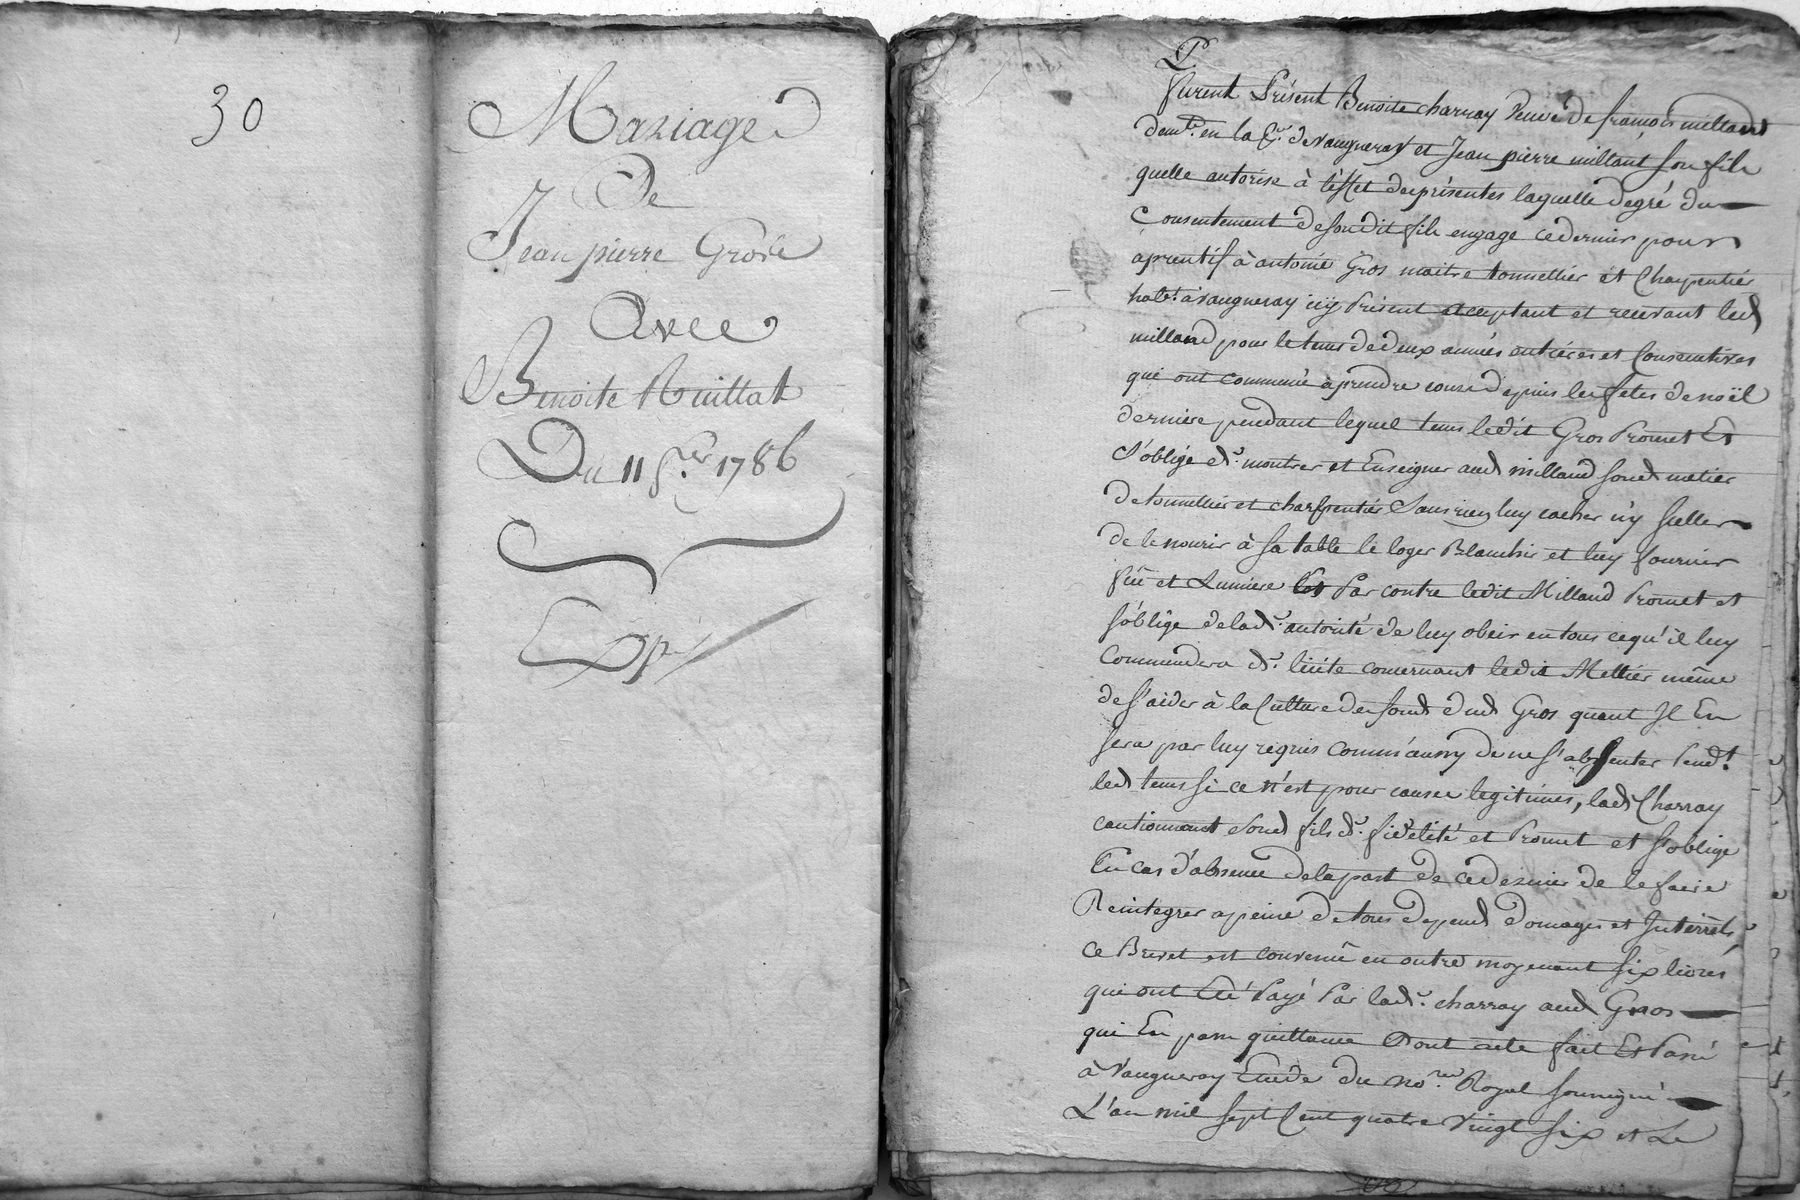 30
Mariage
De
Jean pierre Grosse
Avec
Benoite Ruillat
Du 11 fer 1786
Expé
furent Présent Benoite charray Veuve de francois milland
demte en la par de vaugneray et Jean pierre milland son fils
quelle autorise à l'effet des présentes laquelle degré du
Consentement de sondit fils engage ce dernier pour
aprentif à antoine Gros maitre tonnellier et Charpentier
habt à vaugneray icy Présent acceptant et recevant led
milland pour le tems de deux années entières et Consecutives
qui ont commencé à prendre cours depuis les fetes de noël
derniere pendant lequel tems ledit Gros Promet Et
s'oblige de montrer et Enseigner aud milland soud metier
de tonnellier et charpentier Sans rien luy cacher n'y sceller
de le nourir à sa table le loger Blanchir et luy fournir
feu et Lumiere Par contre ledit Milland Promet et
s'oblige de lad autorité de luy obeir en tous ce qu'il luy
Commendera de licite concernant ledit Mettier même
de s'aider à la Culture des fonds dud Gros quant Il En
sera par luy requis comm'aussy de ne s'absenter Pendt
led tems si ce n'est pour causes legitimes, lad Charray
cautionnant soud fils de fidelité et Promet et s'oblige
En cas d'absence de la part de ce dernier de le faire
Reintegrer a peine de tous depens domages et Interrêts
ce Brevet est convenu en outre moyenant six livres
qui ont Eté Payé Par lad charray aud Gros
qui En passe quittance Dont acte fait Et Passé
à Vaugneray Etude du nore Royal soussigné
L'an mil sept Cent quatre Vingt six et Le